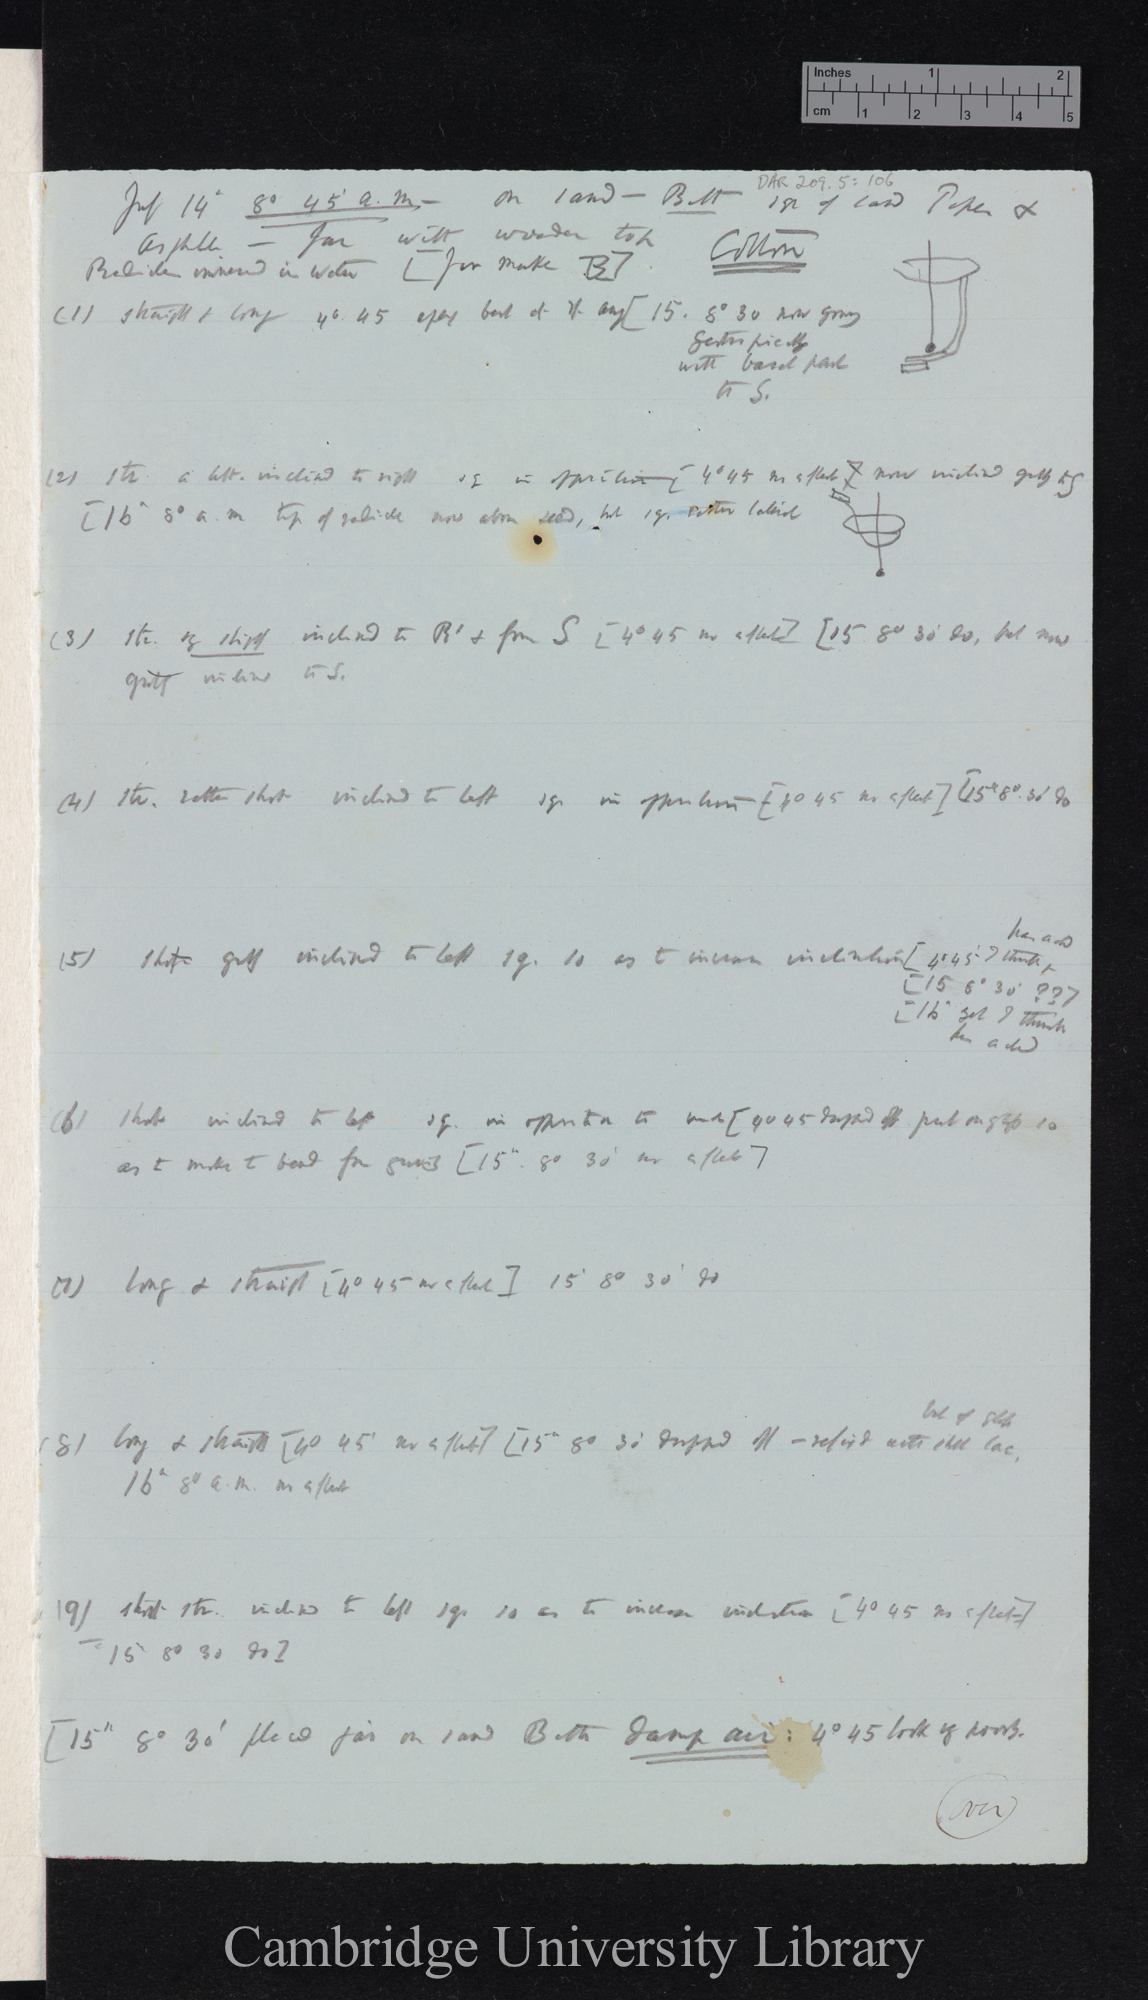 Inches 1 2
cm 1 2 3 4 5
DAR 209.5: 106
14 8° 45' a.m. — on sand — Bott sqr of card Paper &
— Jar with wooden top Cotton
Radicles immersed in water [Jar mark B]
(1) straight & long 4° 45 apex bent [15. 8° 30 now going
geotropically
with basal part
to S.
(2) str. a litt. inclined to right sq in opposition [4° 45 no effect] now inclined
[16 8° a.m top of radicle now above seed, but sq. rather lateral
(3) str. inclined to & from S [4° 45 no effect] [15 8° 30' do, but now
incline to S.
(4) str. rather short inclined to left sqr in opposition [4° 45 no effect] [15 8°. 30' do
(5) short inclined to left sq. so as to increase inclination [4° 45' I think
has acted
[15 8° 30' ??]
[16 I think
has acted
(6) short inclined to left sq. in opposition to [4° 45 dropped off put on so
as to make to bend from [15. 8° 30' no effect]
(7) long & straight [4° 45 no effect] 15 8° 30' do
(8) long & straight [4° 45' no effect] [15 8° 30' dropped off — refixed with shell lac,
16 8° a.m. no effect
(9) short str. inclined to left sqr so as to increase inclination [4° 45 no effect]
15 8° 30 do]
[15 8° 30' placed jar on sand Bath damp air: 4° 45 look
over
Cambridge University Library